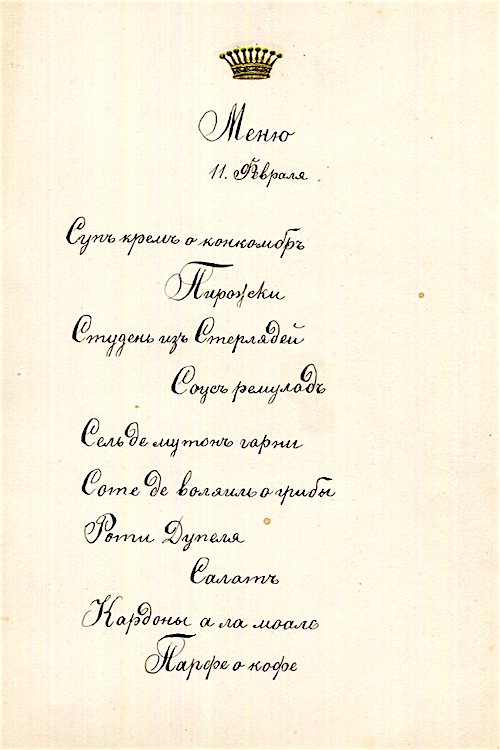 Меню
11. Февраля
Супъ кремъ о конкомбръ
Пирожки
Студень изъ Стерлядей
Соусъ ремуладъ
Сель де мутонъ гарни
Соте де воляиль о грибы
Роти Дупеля
Салатъ
Кардоны а ла моаль
Парфе о кофе